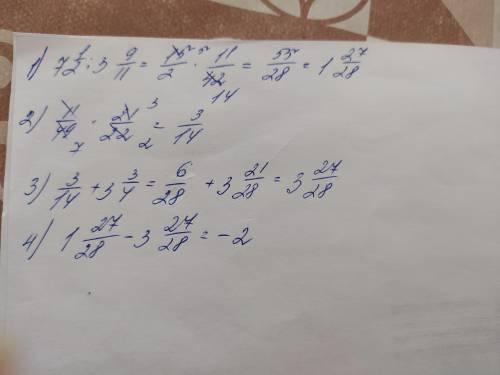 1) 7 1/2 : 3 9/11 = 15/2 5 · 11/42 14 = 55/28 = 1 27/28
2) 11/49 7 · 21/22 3 2 = 3/14
3) 3/14 + 3 3/4 = 6/28 + 3 21/28 = 3 27/28
4) 1 27/28 - 3 27/28 = -2